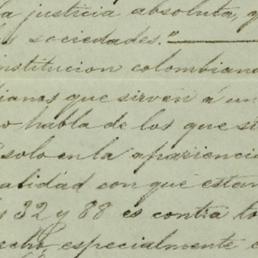 la justicia absoluta, q
sociedades."
nstitucion colombiana
ianos que sirven á un
o habla de los que si
solo en la apariencia
alidad con que estan
32 y 88 es contra to
echo, especialmente e